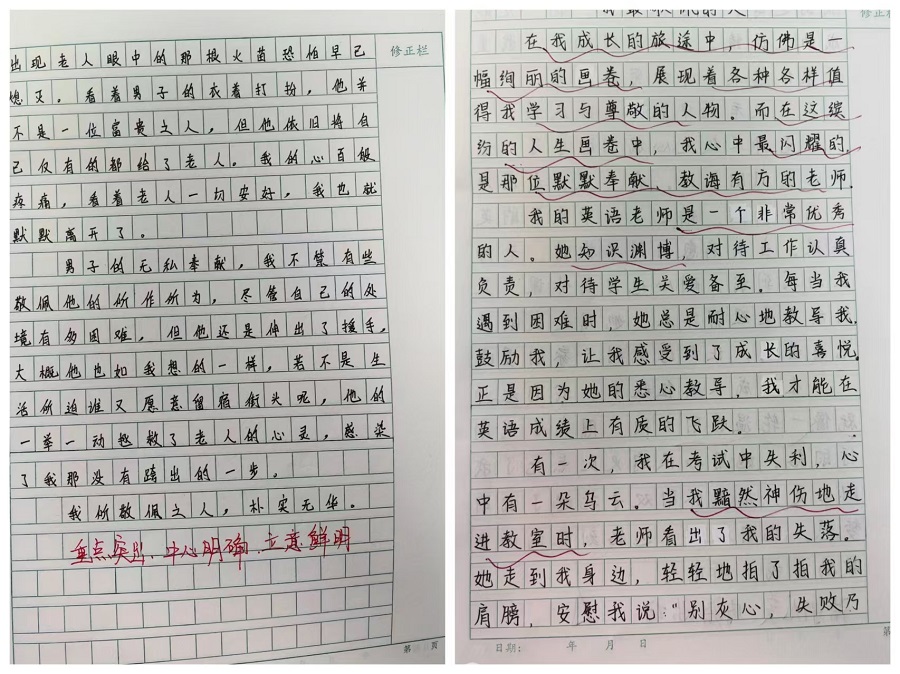 修正栏
出现老人眼中的那撮火苗恐怕早已
熄灭。看着男子的衣着打扮，他并
不是一位富贵之人，但他依旧将自
己仅有的都给了老人。我的心百般
疼痛，看着老人一切安好，我也就
默默离开了。
男子的无私奉献，我不禁有些
敬佩他的所作所为，尽管自己的处
境有多困难，但他还是伸出了援手，
大概他也如我想的一样，若不是生
活所迫谁又愿意留宿街头呢，他的
一举一动拯救了老人的心灵，感染
了我那没有踏出的一步。
我所敬佩之人，朴实无华。
重点突出、中心明确、立意鲜明
第 页
修正栏
在我成长的旅途中，仿佛是一
幅绚丽的画卷，展现着各种各样值
得我学习与尊敬的人物。而在这缤
纷的人生画卷中，我心中最闪耀的，
是那位默默奉献、教诲有方的老师.
我的英语老师是一个非常优秀
的人。她知识渊博，对待工作认真
负责，对待学生关爱备至。每当我
遇到困难时，她总是耐心地教导我，
鼓励我，让我感受到了成长的喜悦。
正是因为她的悉心教导，我才能在
英语成绩上有质的飞跃。
有一次，我在考试中失利，心
中有一朵乌云。当我黯然神伤地走
进教室时，老师看出了我的失落。
她走到我身边，轻轻地拍了拍我的
肩膀，安慰我说："别灰心，失败乃
日期： 年 月 日
第